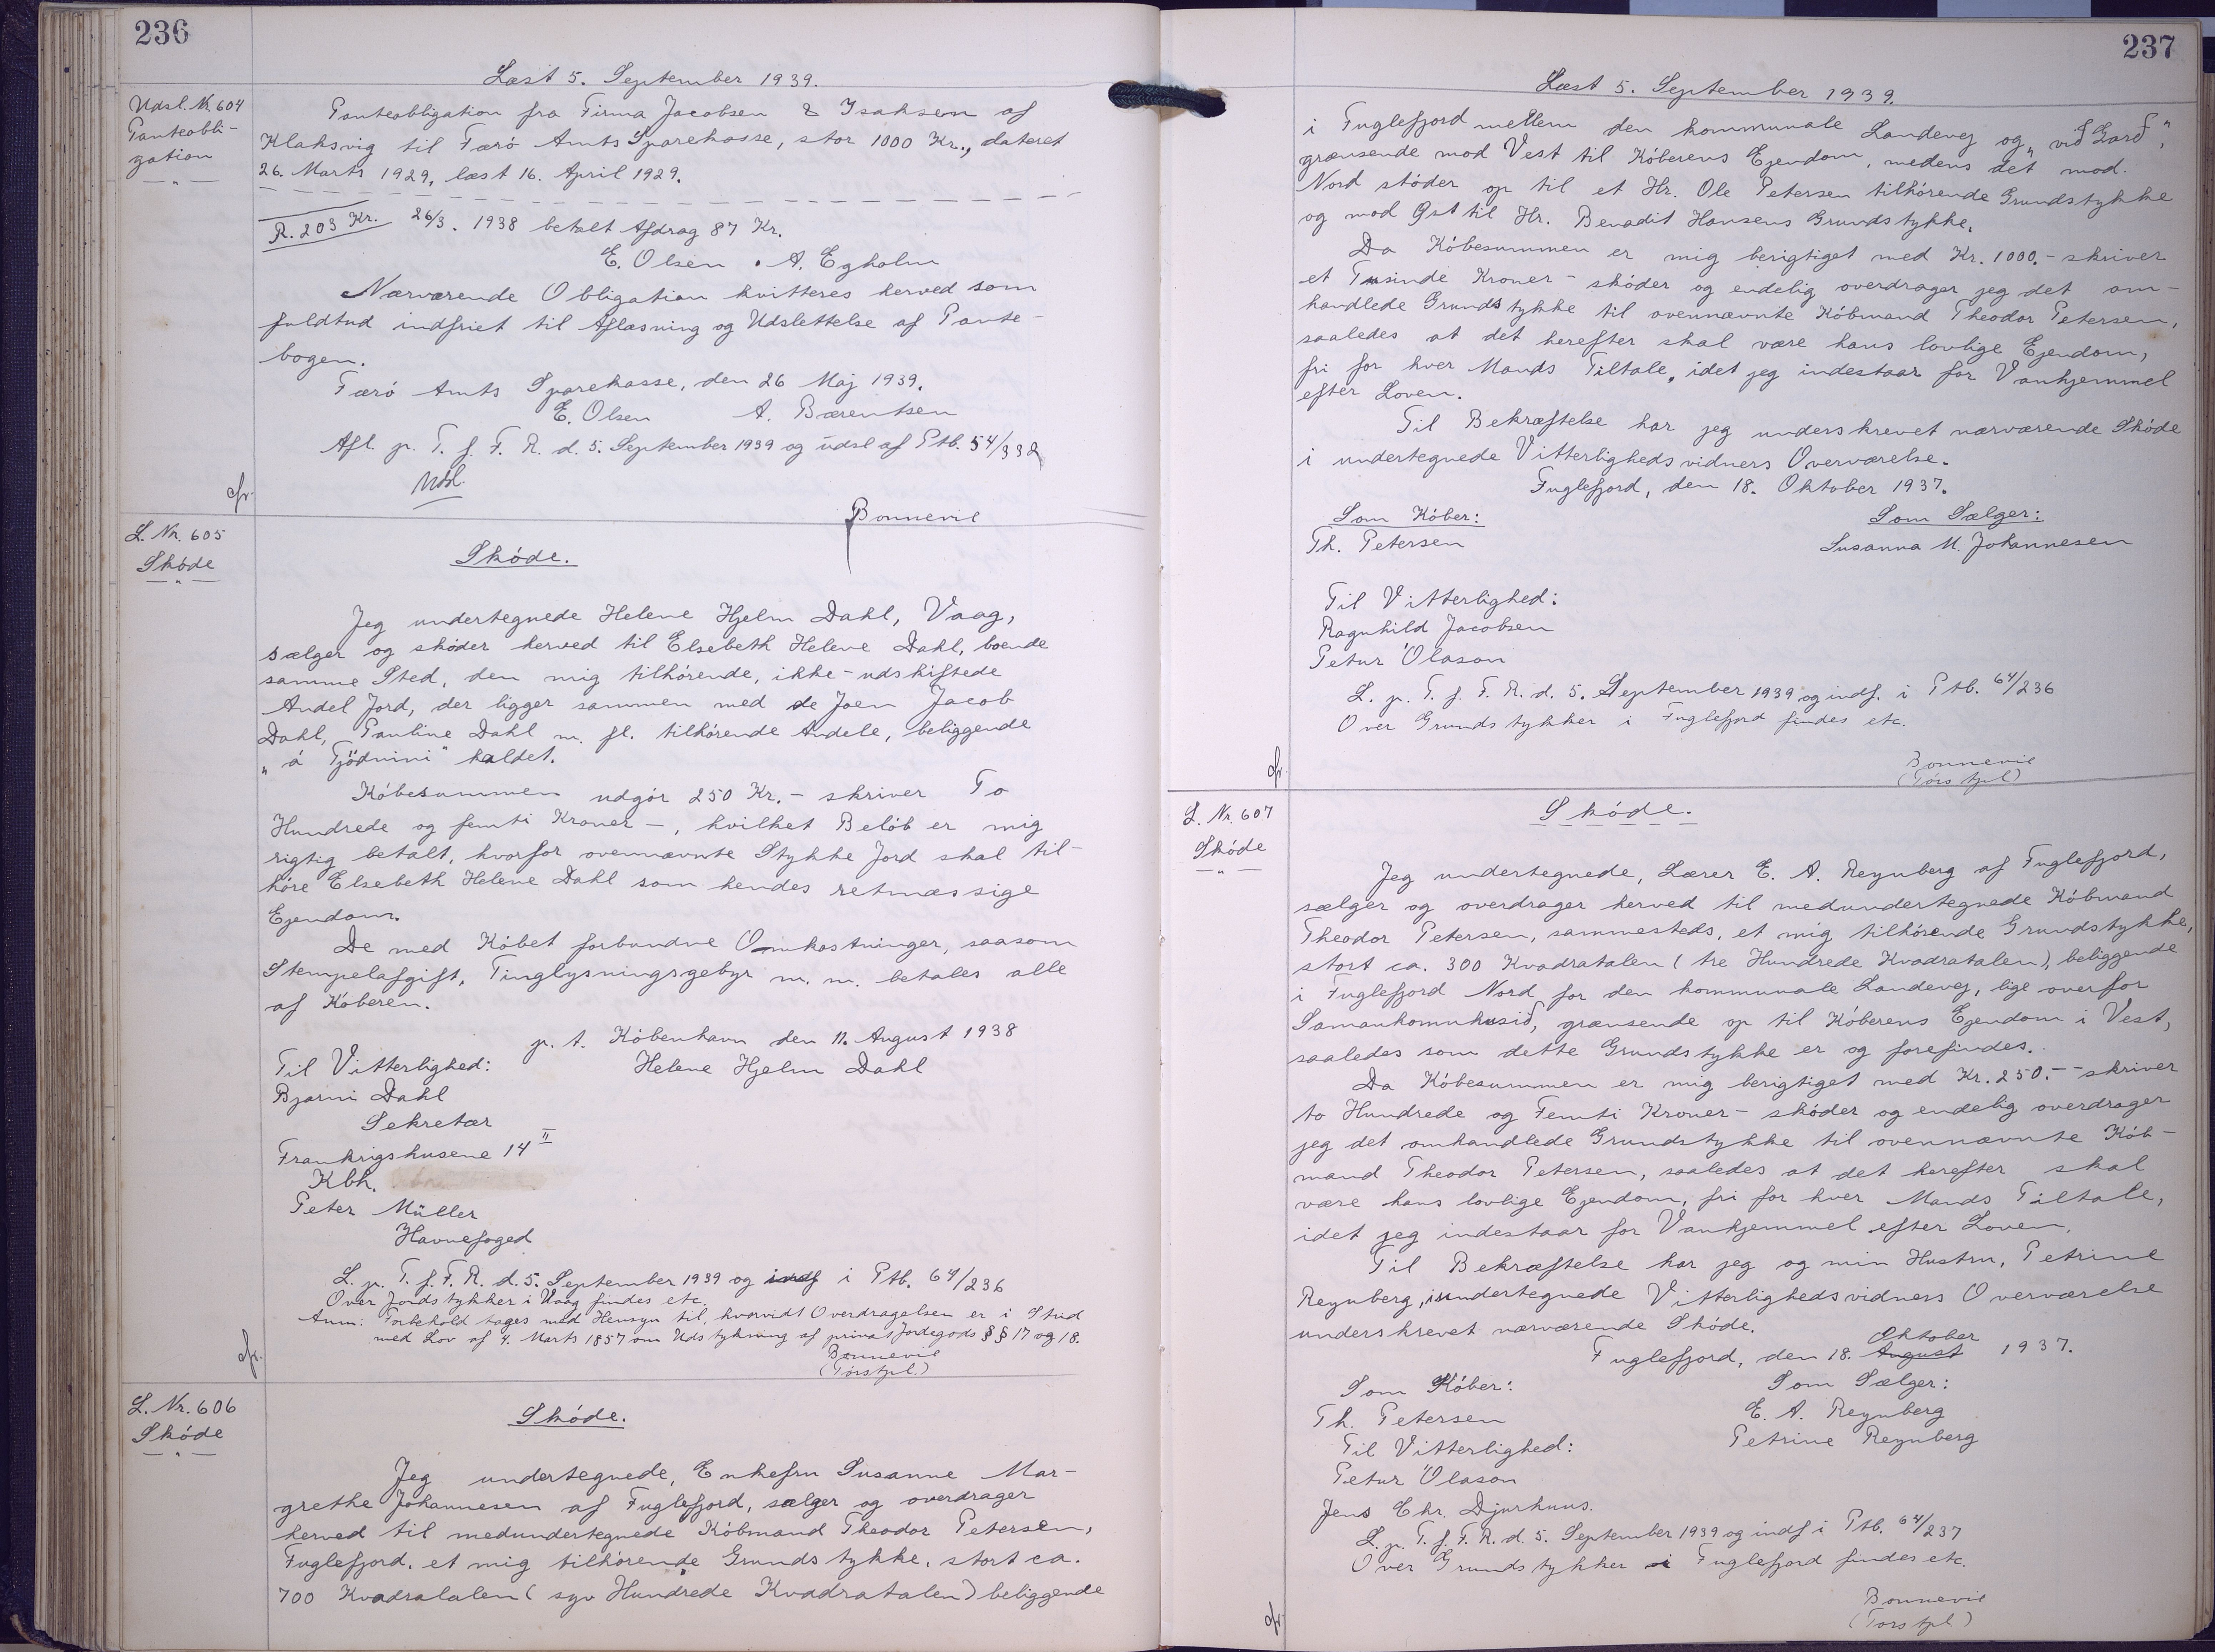 236
Læst 5. September 1939.
Udsl. Nr. 604
Panteobli-
gation
Panteobligation fra Firma Jacobsen & Isaksen af
Klaksvig til Færö Amts Sparekasse, stor 1000 Kr., dateret
26. Marts 1929, læst 16. April 1929.
R. 203 Kr. 26/3. 1938 betalt Afdrag 87 Kr.
E. Olsen . A. Egholm
Nærværende Obligation kvitteres herved som
fuldtud indfriet til Aflæsning og Udslettelse af Pante-
bogen.
Færö Amts Sparekasse, den 26 Maj 1939.
E. Olsen A. Bærentsen
Afl. p. T. f. F. R. d. 5. September 1939 og udsl af Ptb. 54/332
Udsl.
cfr.
Bonnevie
L. Nr. 605
Sköde
Sköde.
Jeg undertegnede Helene Hjelm Dahl, Vaag,
sælger og sköder herved til Elsebeth Helene Dahl, boende
samme Sted, den mig tilhörende, ikke-udskiftede
Andel Jord, der ligger sammen med de Joen Jacob
Dahl, Pauline Dahl m. fl. tilhörende Andele, beliggende
„á Tjödnini" kaldet.
Köbesummen udgör 250 Kr.- skriver To
Hundrede og femti Kroner -, hvilket Belöb er mig
rigtig betalt, hvorfor ovennævnte Stykke Jord skal til-
höre Elsebeth Helene Dahl som hendes retmæssige
Ejendom.
De med Köbet forbundne Omkostninger, saasom
Stempelafgift, Tinglysningsgebyr m. m. betales alle
af Köberen.
p. t. Köbenhavn den 11. August 1938
Til Vitterlighed: Helene Hjelm Dahl
Bjarni Dahl
Sekretær
Frankrigshusene 14 II
Kbh.
Peter Müller
Havnefoged
L. p. T. f. F. R. d. 5. September 1939 og indf i Ptb. 64/236
Over Jordstykker i Vaag findes etc.
Anm: Forbehold tages med Hensyn til, hvorvidt Overdragelsen er i Strid
med Lov af 4. Marts 1857 om Udstykning af privat Jordegods §§ 17 og 18.
cfr.
Bonnevie
(Tórstpl.)
L. Nr. 606
Sköde
Sköde.
Jeg undertegnede, Enkefru Susanne Mar-
grethe Johannesen af Fuglefjord, sælger og overdrager
herved til medundertegnede Köbmand Theodor Petersen,
Fuglefjord, et mig tilhörende Grundstykke, stort ca.
700 Kvadratalen (syv Hundrede Kvadratalen) beliggende
237
Læst 5. September 1939.
i Fuglefjord mellem den kommunale Landevej og „við Garð",
grænsende mod Vest til Köberens Ejendom, medens det mod.
Nord stöder op til et Hr. Ole Petersen tilhörende Grundstykke
og mod Øst til Hr. Benadit Hansens Grundstykke.
Da Köbesummen er mig berigtiget med Kr. 1000.- skriver
et Tusinde Kroner - sköder og endelig overdrager jeg det om-
handlede Grundstykke til ovennævnte Köbmand Theodor Petersen,
saaledes at det herefter skal være hans lovlige Ejendom,
fri for hver Mands Tiltale, idet jeg indestaar for Vanhjemmel
efter Loven.
Til Bekræftelse har jeg underskrevet nærværende Sköde
i undertegnede Vitterlighedsvidners Overværelse.
Fuglefjord, den 18. Oktober 1937.
Som Köber: Som Sælger:
Th. Petersen Susanna M. Johannesen
Til Vitterlighed:
Ragnhild Jacobsen
Petur Ólason
L. p. T. f. F. R. d. 5. September 1939 og indf. i Ptb. 64/236
Over Grundstykker i Fuglefjord findes etc.
cfr.
Bonnevie
(Tórstpl)
L. Nr. 607
Sköde
Sköde.
Jeg undertegnede, Lærer E. A. Reynberg af Fuglefjord,
sælger og overdrager herved til medundertegnede Köbmand
Theodor Petersen, sammesteds, et mig tilhörende Grundstykke,
stort ca. 300 Kvadratalen (tre Hundrede Kvadratalen), beliggende
i Fuglefjord Nord for den kommunale Landevej, lige overfor
Samankomuhusið, grænsende op til Köberens Ejendom i Vest,
saaledes som dette Grundstykke er og forefindes.
Da Köbesummen er mig berigtiget med Kr. 250.- - skriver
to Hundrede og Femti Kroner - sköder og endelig overdrager
jeg det omhandlede Grundstykke til ovennævnte Köb-
mand Theodor Petersen, saaledes at det herefter skal
være hans lovlige Ejendom, fri for hver Mands Tiltale,
idet jeg indestaar for Vanhjemmel efter Loven.
Til Bekræftelse har jeg og min Hustru, Petrine
Reynberg, i undertegnede Vitterlighedsvidners Overværelse
underskrevet nærværende Sköde.
Oktober
Fuglefjord, den 18. August 1937.
Som Köber: Som Sælger:
Th. Petersen E. A. Reynberg
Til Vitterlighed: Petrine Reynberg
Petur Ólason
Jens Chr. Djurhuus.
L. p. T. f. F. R. d. 5. September 1939 og indf i Ptb. 64/237
Over Grundstykker i Fuglefjord findes etc.
cfr.
Bonnevie
(Tórstpl)